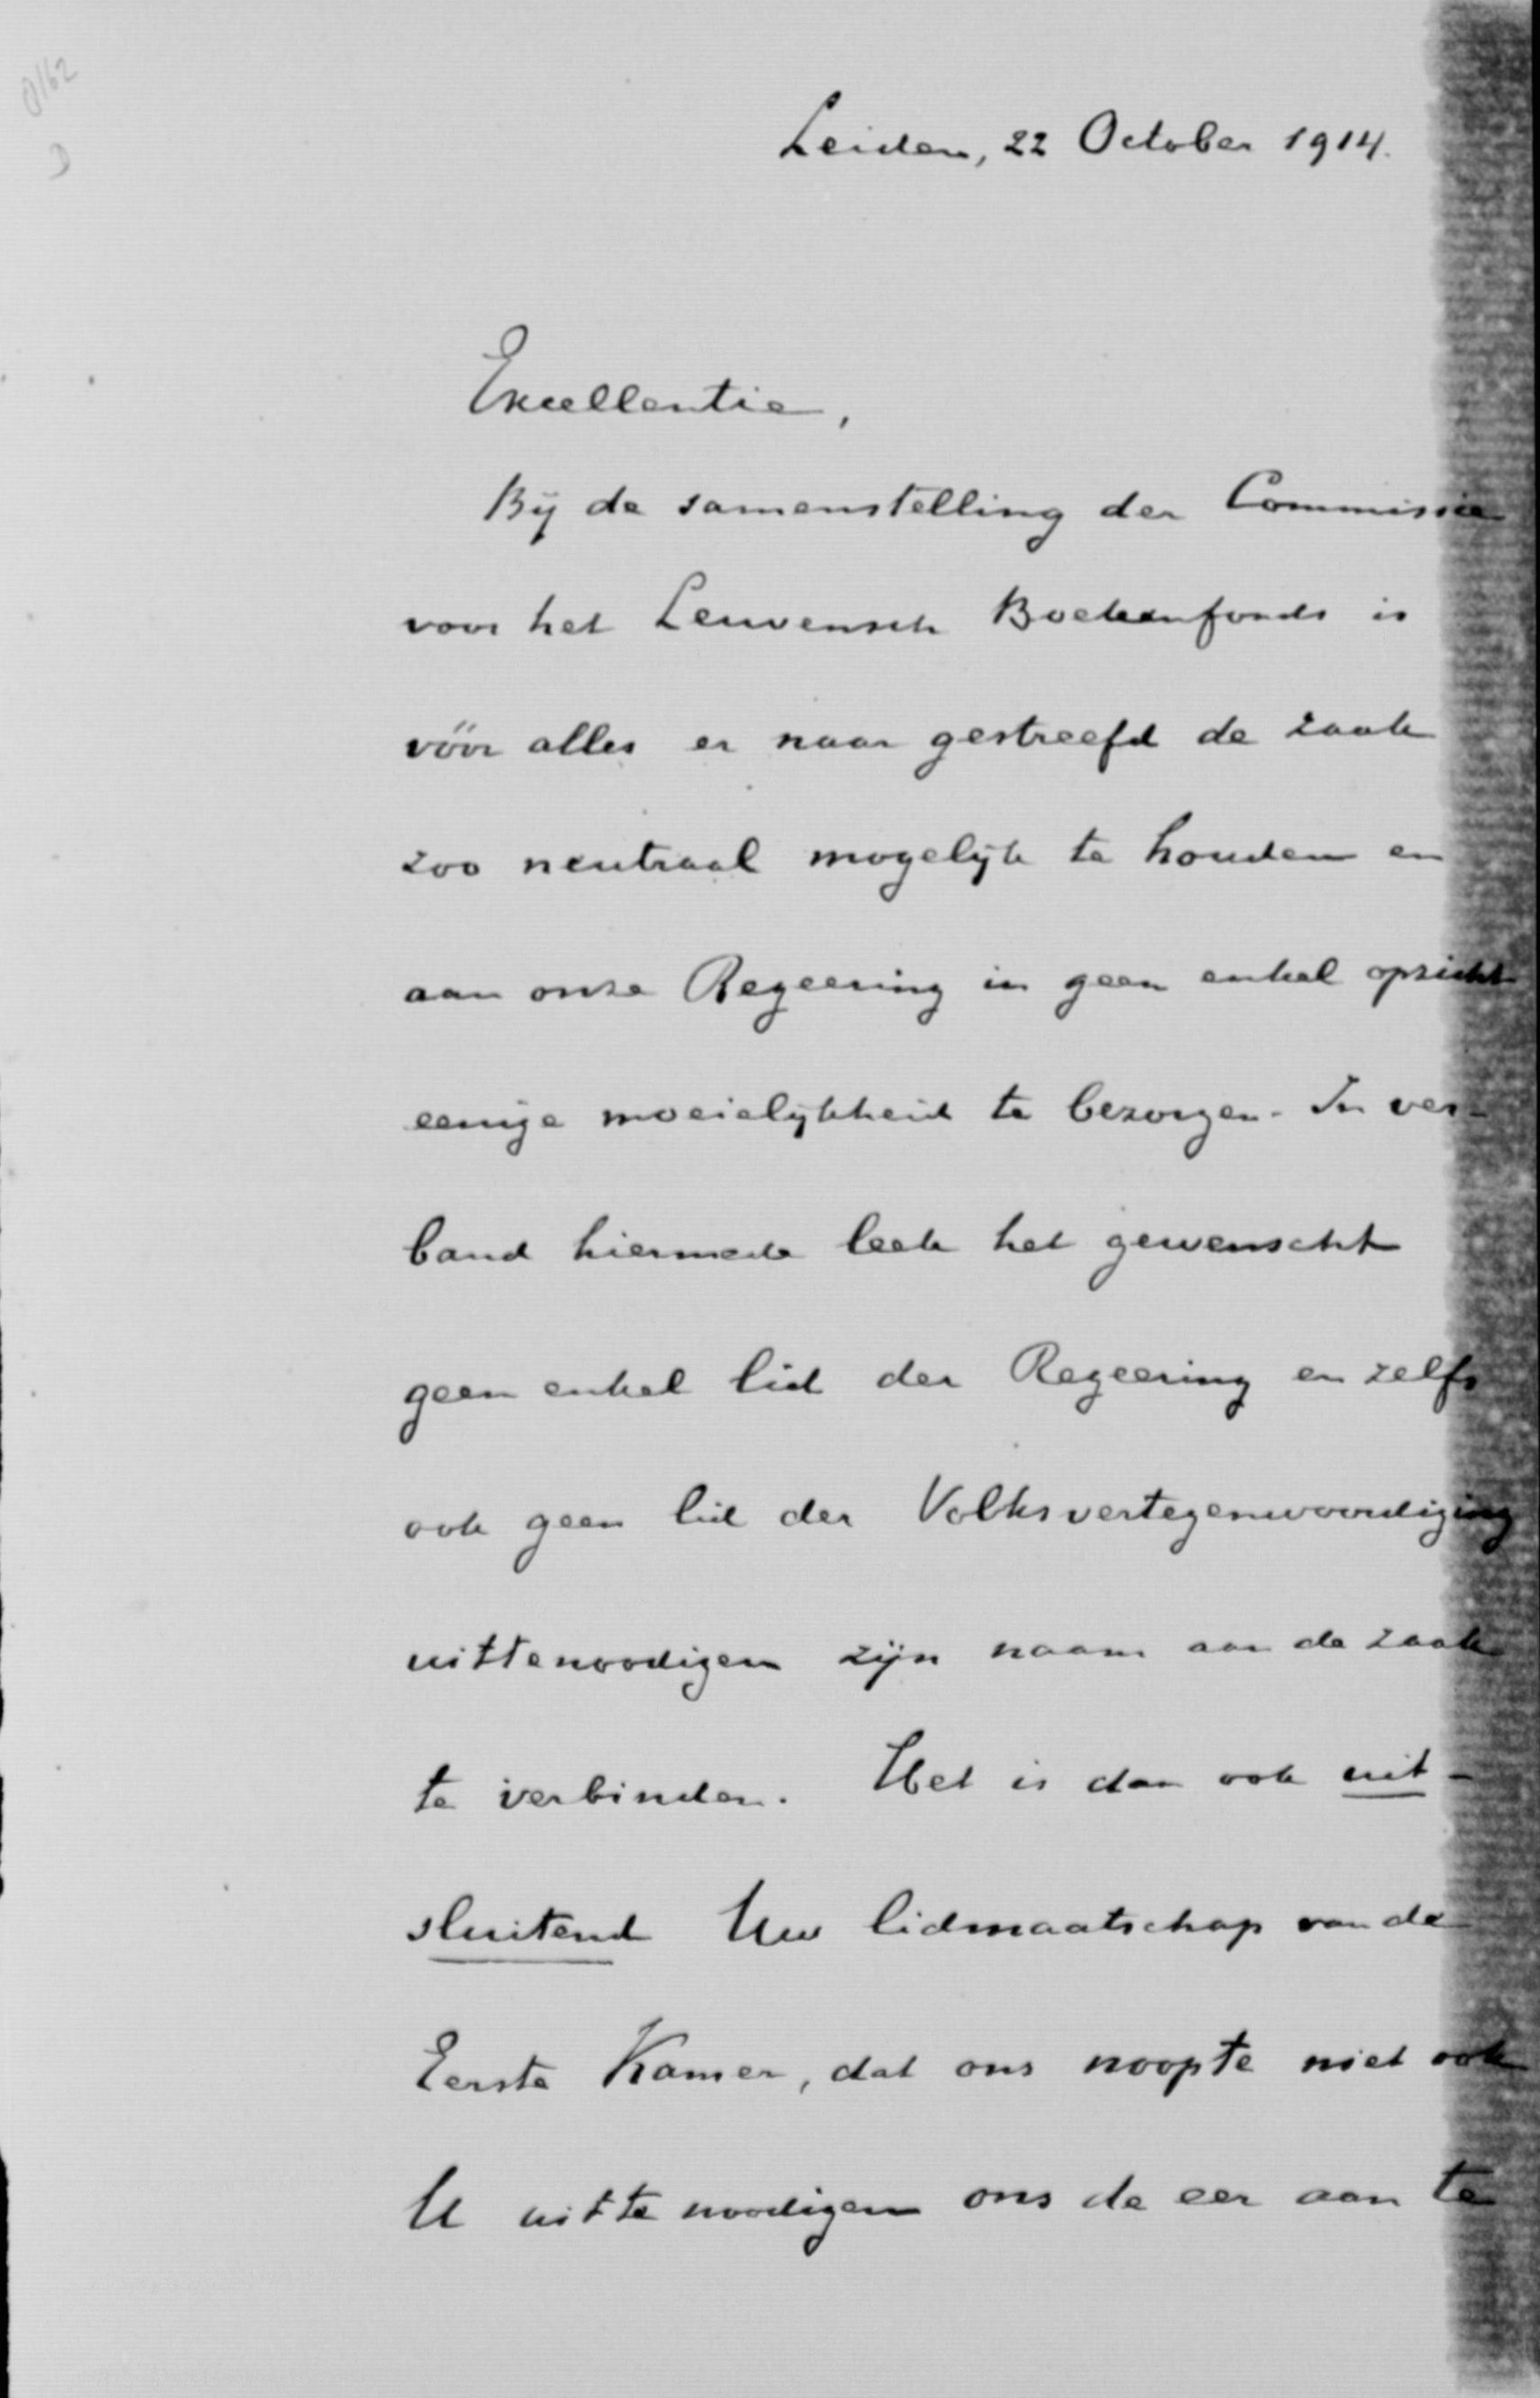 0162
D
Leiden, 22 October 1914.
Excellentie,
Bij de samenstelling der Commissie
voor het Leuvensch Boekenfonds is
vóór alles er naar gestreefd de zaak
zoo neutraal mogelijk te houden en
aan onze Regeering in geen enkel opzicht
eenige moeielijkheid te bezorgen. In ver-
band hiermede leek het gewenscht
geen enkel lid der Regeering en zelfs
ook geen lid der Volksvertegenwoordiging
uittenoodigen zijn naam aan de zaak
te verbinden. Het is dan ook uit-
sluitend Uw lidmaatschap van de
Eerste Kamer, dat ons noopte niet ook
U uit te noodigen ons de eer aan te